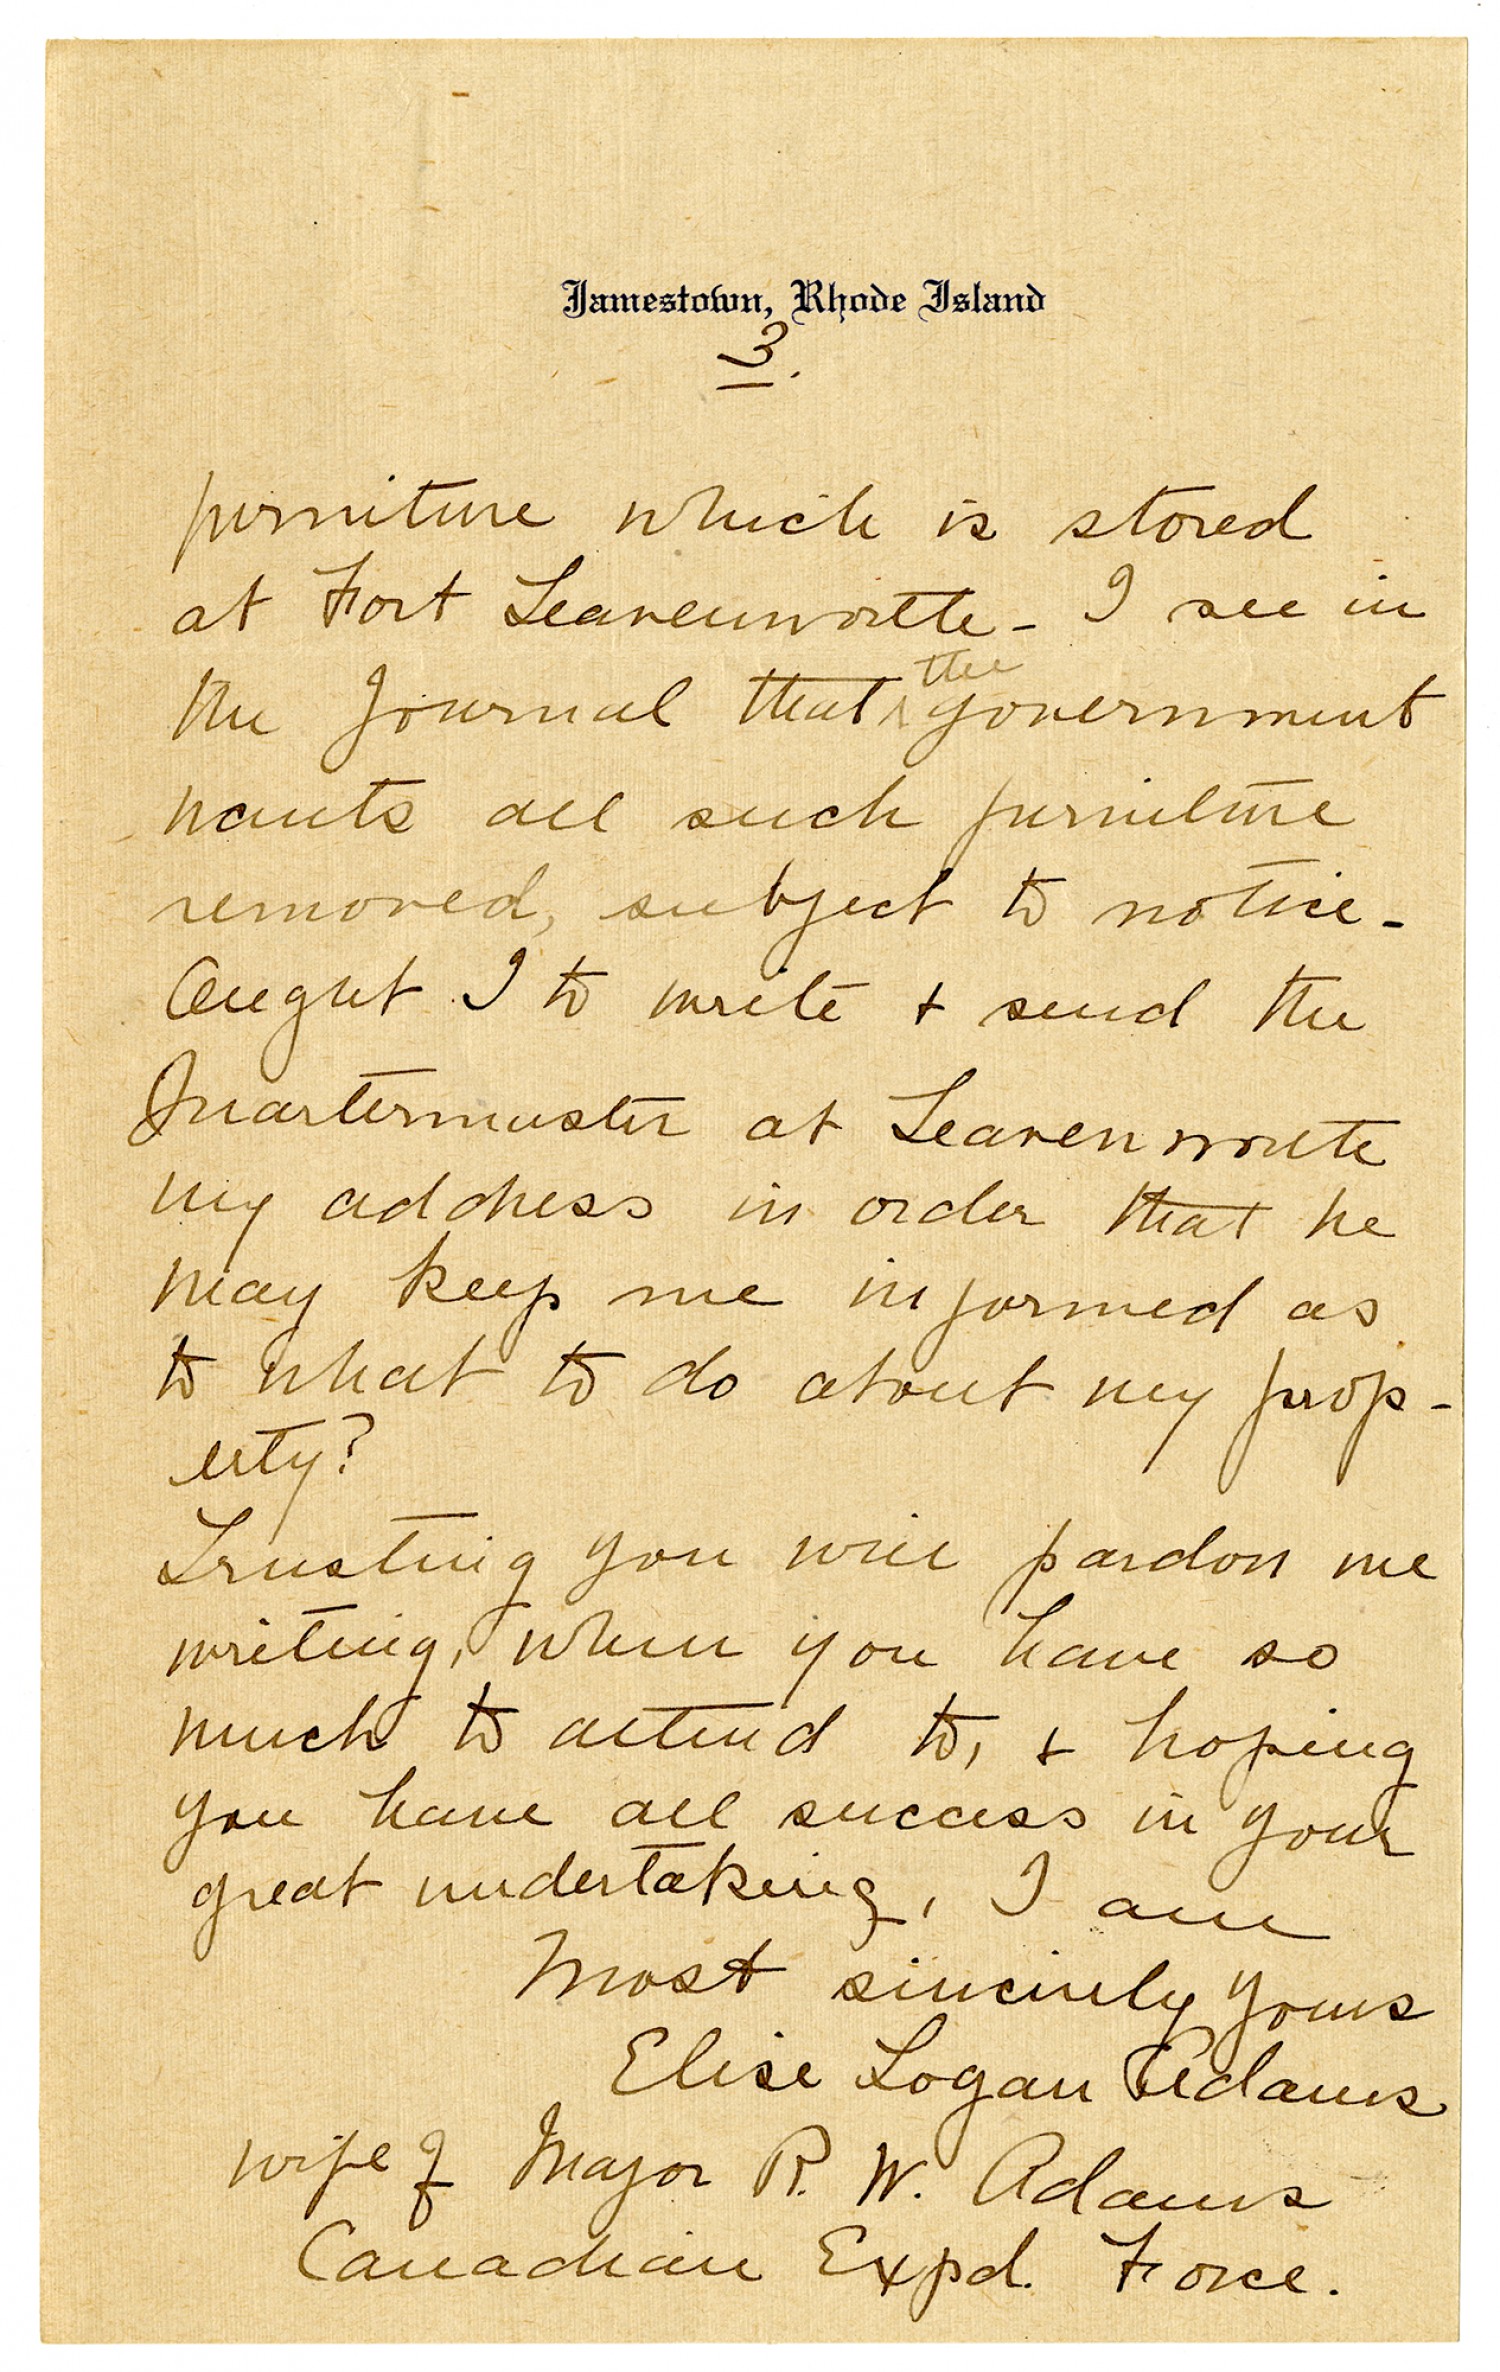 Jamestown, Rhode Island
3.
furniture which is stored
at Fort Leavenworth - I see in
the Journal that the government
wants all such furniture
removed, subject to notice -
Ought I to write + send the
Quartermaster at Leavenworth
my address in order that he
may keep me informed as
to what to do about my prop-
erty?
Trusting you will pardon me
writing, when you have so
much to attend to, + hoping
you have all success in your
great undertaking, I am
Most sincerely yours
Elise Logan Adams
wife of Major R. W. Adams
Canadian Expd. Force.